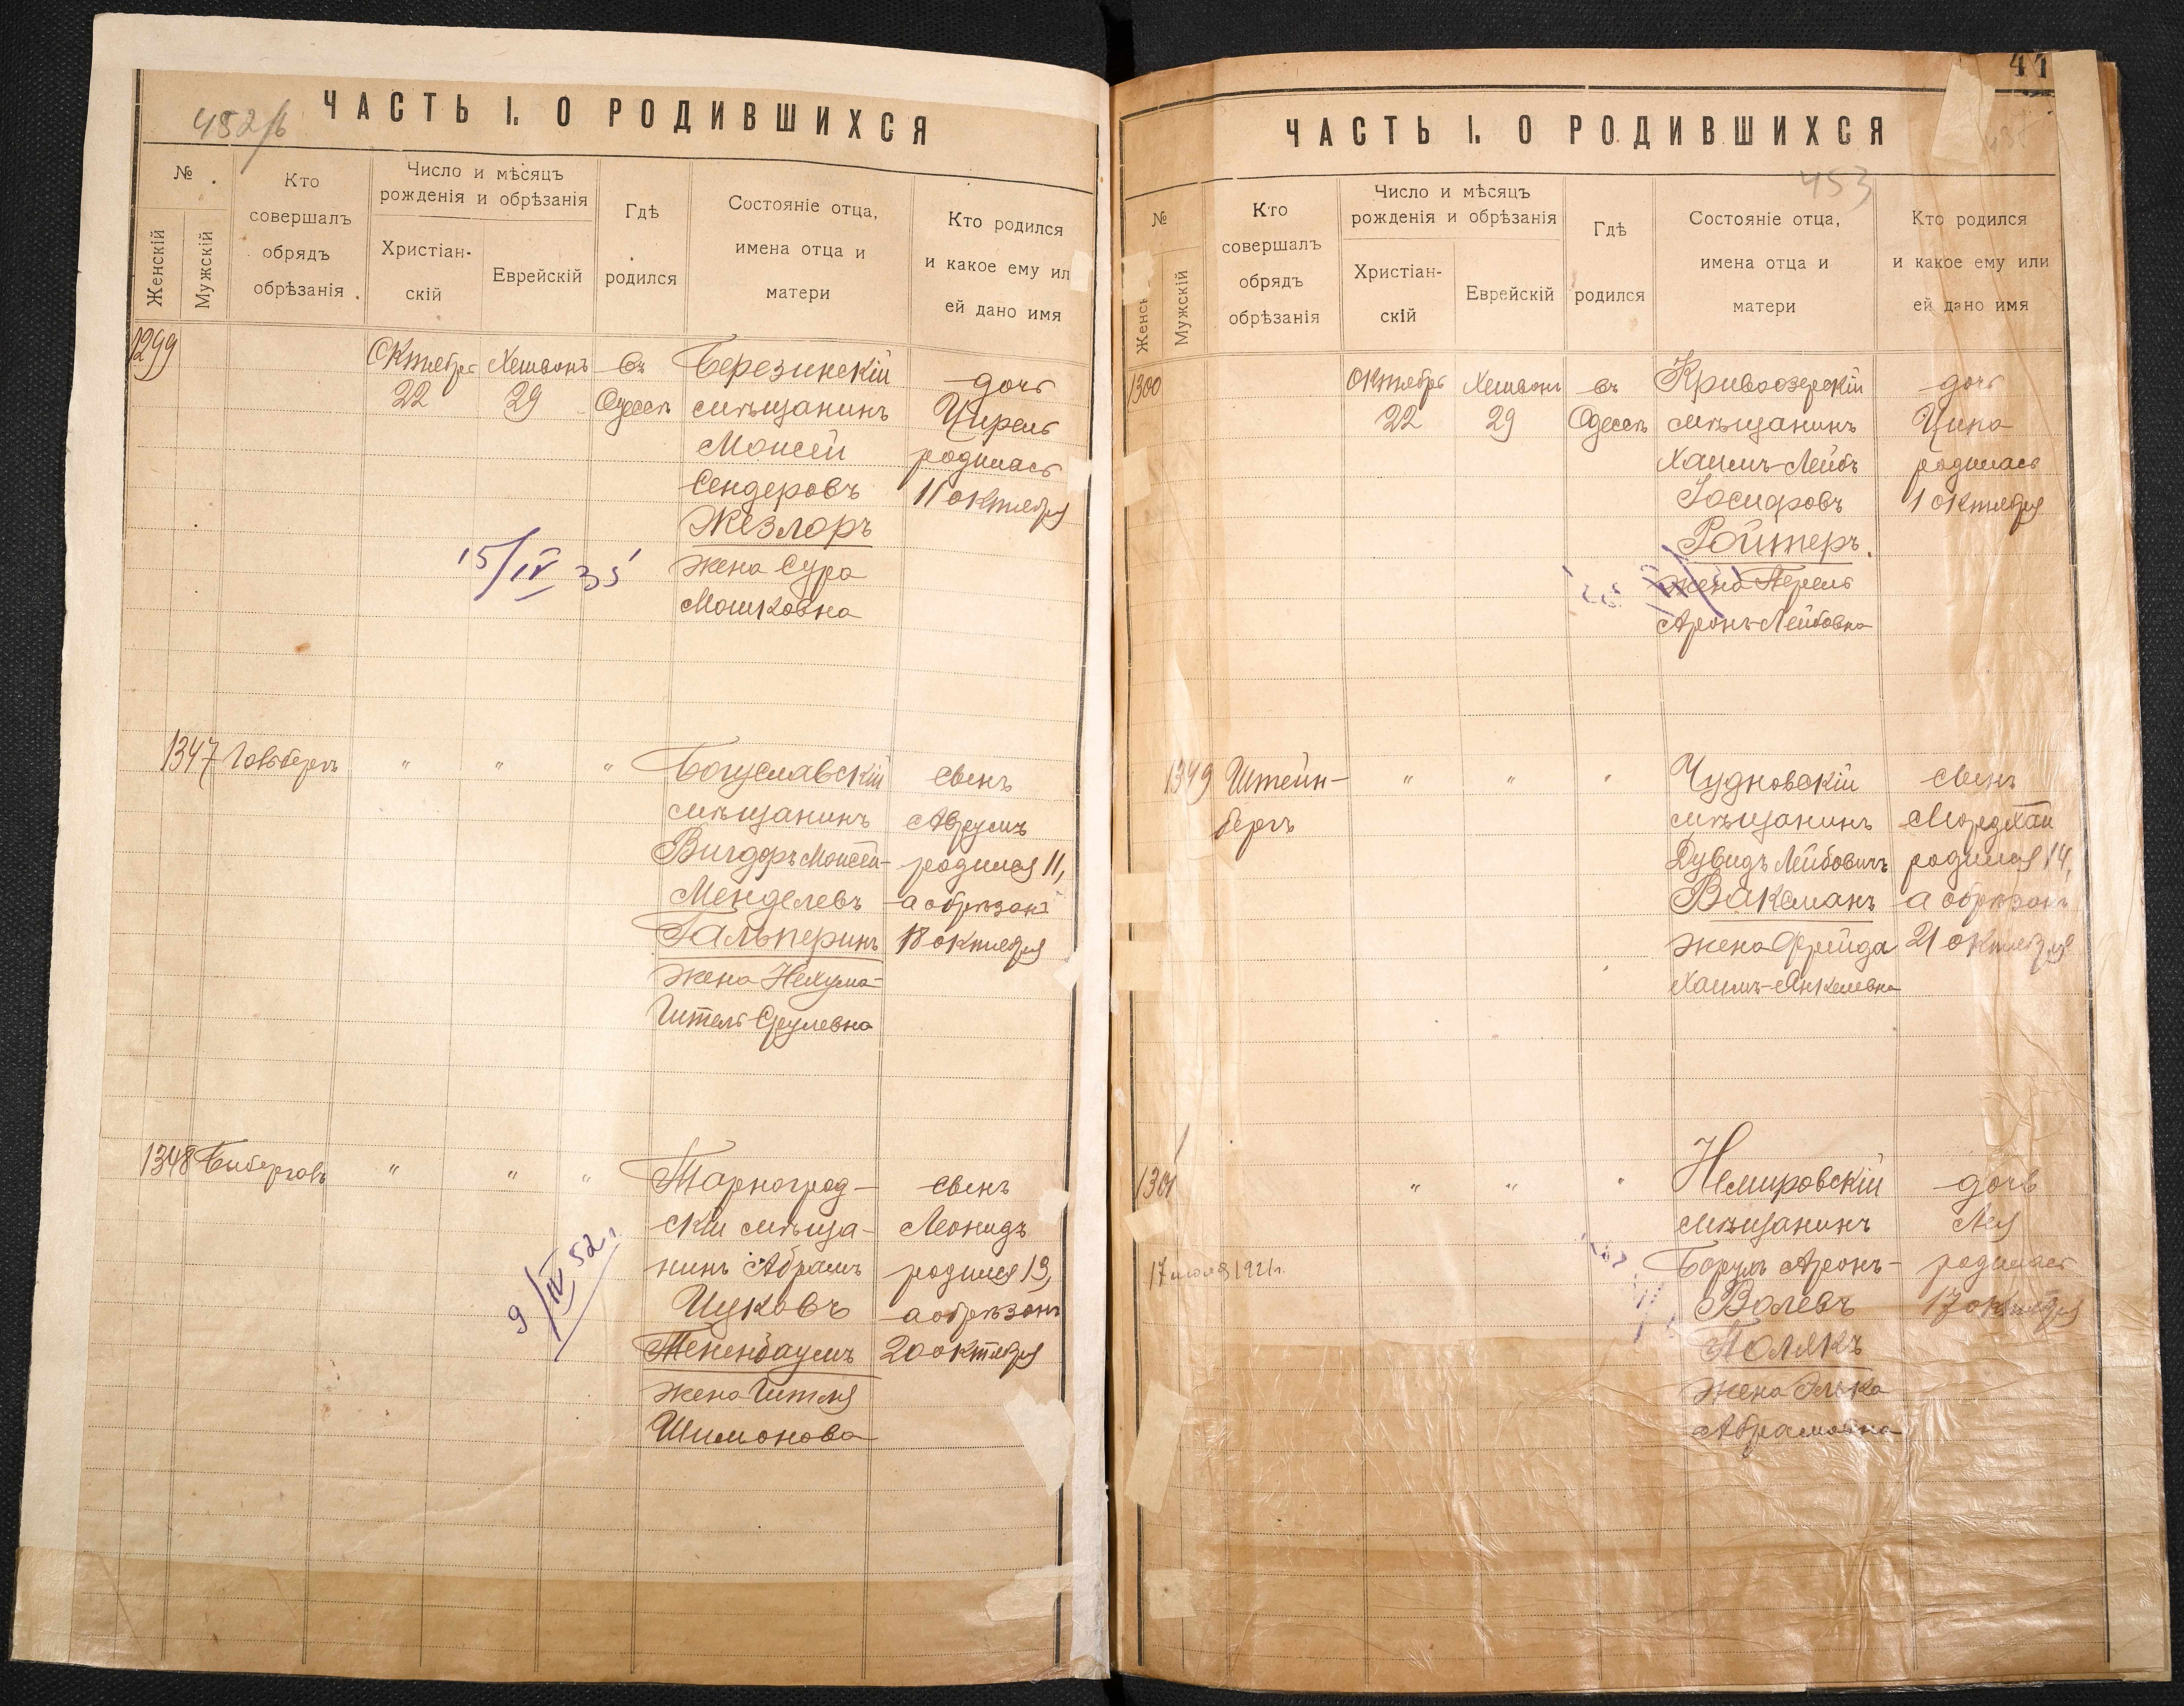 452/б
ЧАСТЬ I. О РОДИВШИХСЯ
№
Женскій
Мужскій
Кто
совершалъ
обрядъ
обрѣзанія
Число и мѣсяцъ
рожденія и обрѣзанія
Христіан-
скій
Еврейскій
Гдѣ
родился
Состояніе отца,
имена отца и
матери
Кто родился
и какое ему ил
ей дано имя
1299
Октября
22
Хешвонъ
29
въ
Одессѣ
Березинскій
мѣщанинъ
Моисей
Сендеровъ
Жезлоръ
жена Сура
Мошковна
дочь
Цирель
родилась
11 октября
15/IV 35
1347
Гольбергъ
"
"
"
Богуславскій
мѣщанинъ
Вигдоръ Моисей-
Менделевъ
Гальперинъ
жена Нехума-
Гитель Срулевна
сынъ
Аврумъ
родился 11,
а обрѣзанъ
18 октября
1348
"
"
"
Тарноград-
скій мѣща-
нинъ Абрамъ
Ицковъ
Тененбаумъ
жена Гитля
Шимонова
сынъ
Леонидъ
родился 13,
а обрѣзанъ
20 октября
9/IV 52 г.
41
453
ЧАСТЬ I. О РОДИВШИХСЯ
№
Женск
Мужскій
Кто
совершалъ
обрядъ
обрѣзанія
Число и мѣсяцъ
рожденія и обрѣзанія
Христіан-
скій
Еврейскій
Гдѣ
родился
Состояніе отца,
имена отца и
матери
Кто родился
и какое ему или
ей дано имя
1300
Октябрь
22
Хешвонъ
29
въ
Одессѣ
Кривоозерскій
мѣщанинъ
Хаимъ-Лейбъ
Іосифовъ
Ройтеръ
жена Перель
Аронъ-Лейбовна
дочь
Ципа
родилась
1 октября
1349
Штейн-
бергъ
"
"
"
Чудновскій
мѣщанинъ
Дувидъ Лейбовичъ
Ваксманъ
жена Фрейда
Хаимъ-Янкелевна
сынъ
Мордхай
родился 14,
а обрѣзанъ
21 октября
1301
"
"
"
Немировскій
мѣщанинъ
Борухъ Аронъ-
Волевъ
Полякъ
жена Элька
Абрамовна
дочь
Лея
родилась
17 октября
17 июля 1921 г.